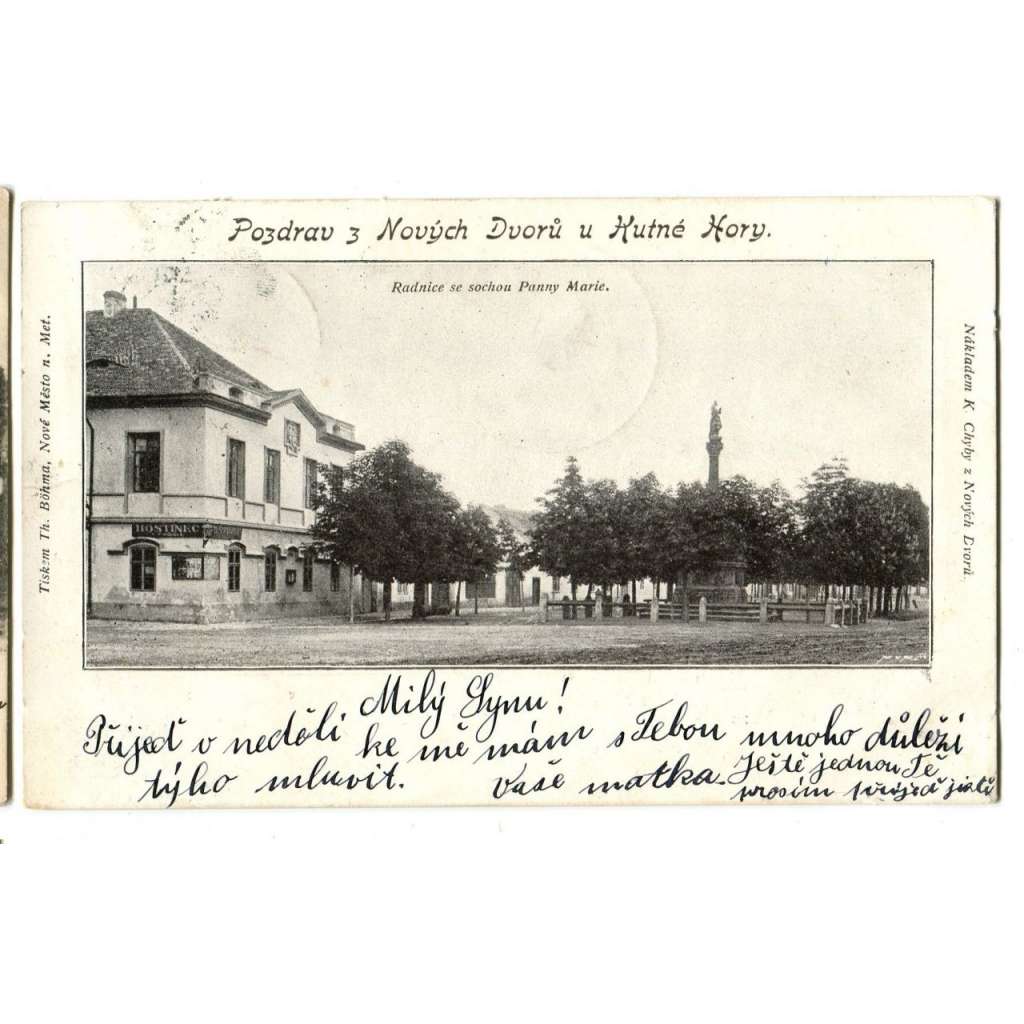 Pozdrav z Nových Dvorů u Kutné Hory.
Radnice se sochou Panny Marie.
Tiskem Th. Böhma, Nové Město n. Met.
Nákladem K Chyby z Nových Dvorů.
HOSTINEC
Milý Synu!
Přijeď v neděli ke mě mám s Tebou mnoho důleži
týho mluvit. Vaše matka Ještě jednou Tě
prosím přijeď jistě